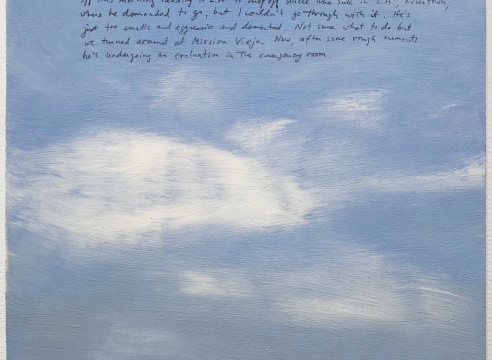 off this morning heading to L.A. to drop off Uncle who Suie in L.A., Koreatown,
where he demanded to go, but I wouldn't go through with it. He's
just too erratic and aggressive and demented. Not sure what to do but
we turned around at Mission Viejo. Now, after some rough moments
he's undergoing an evaluation in the emergency room